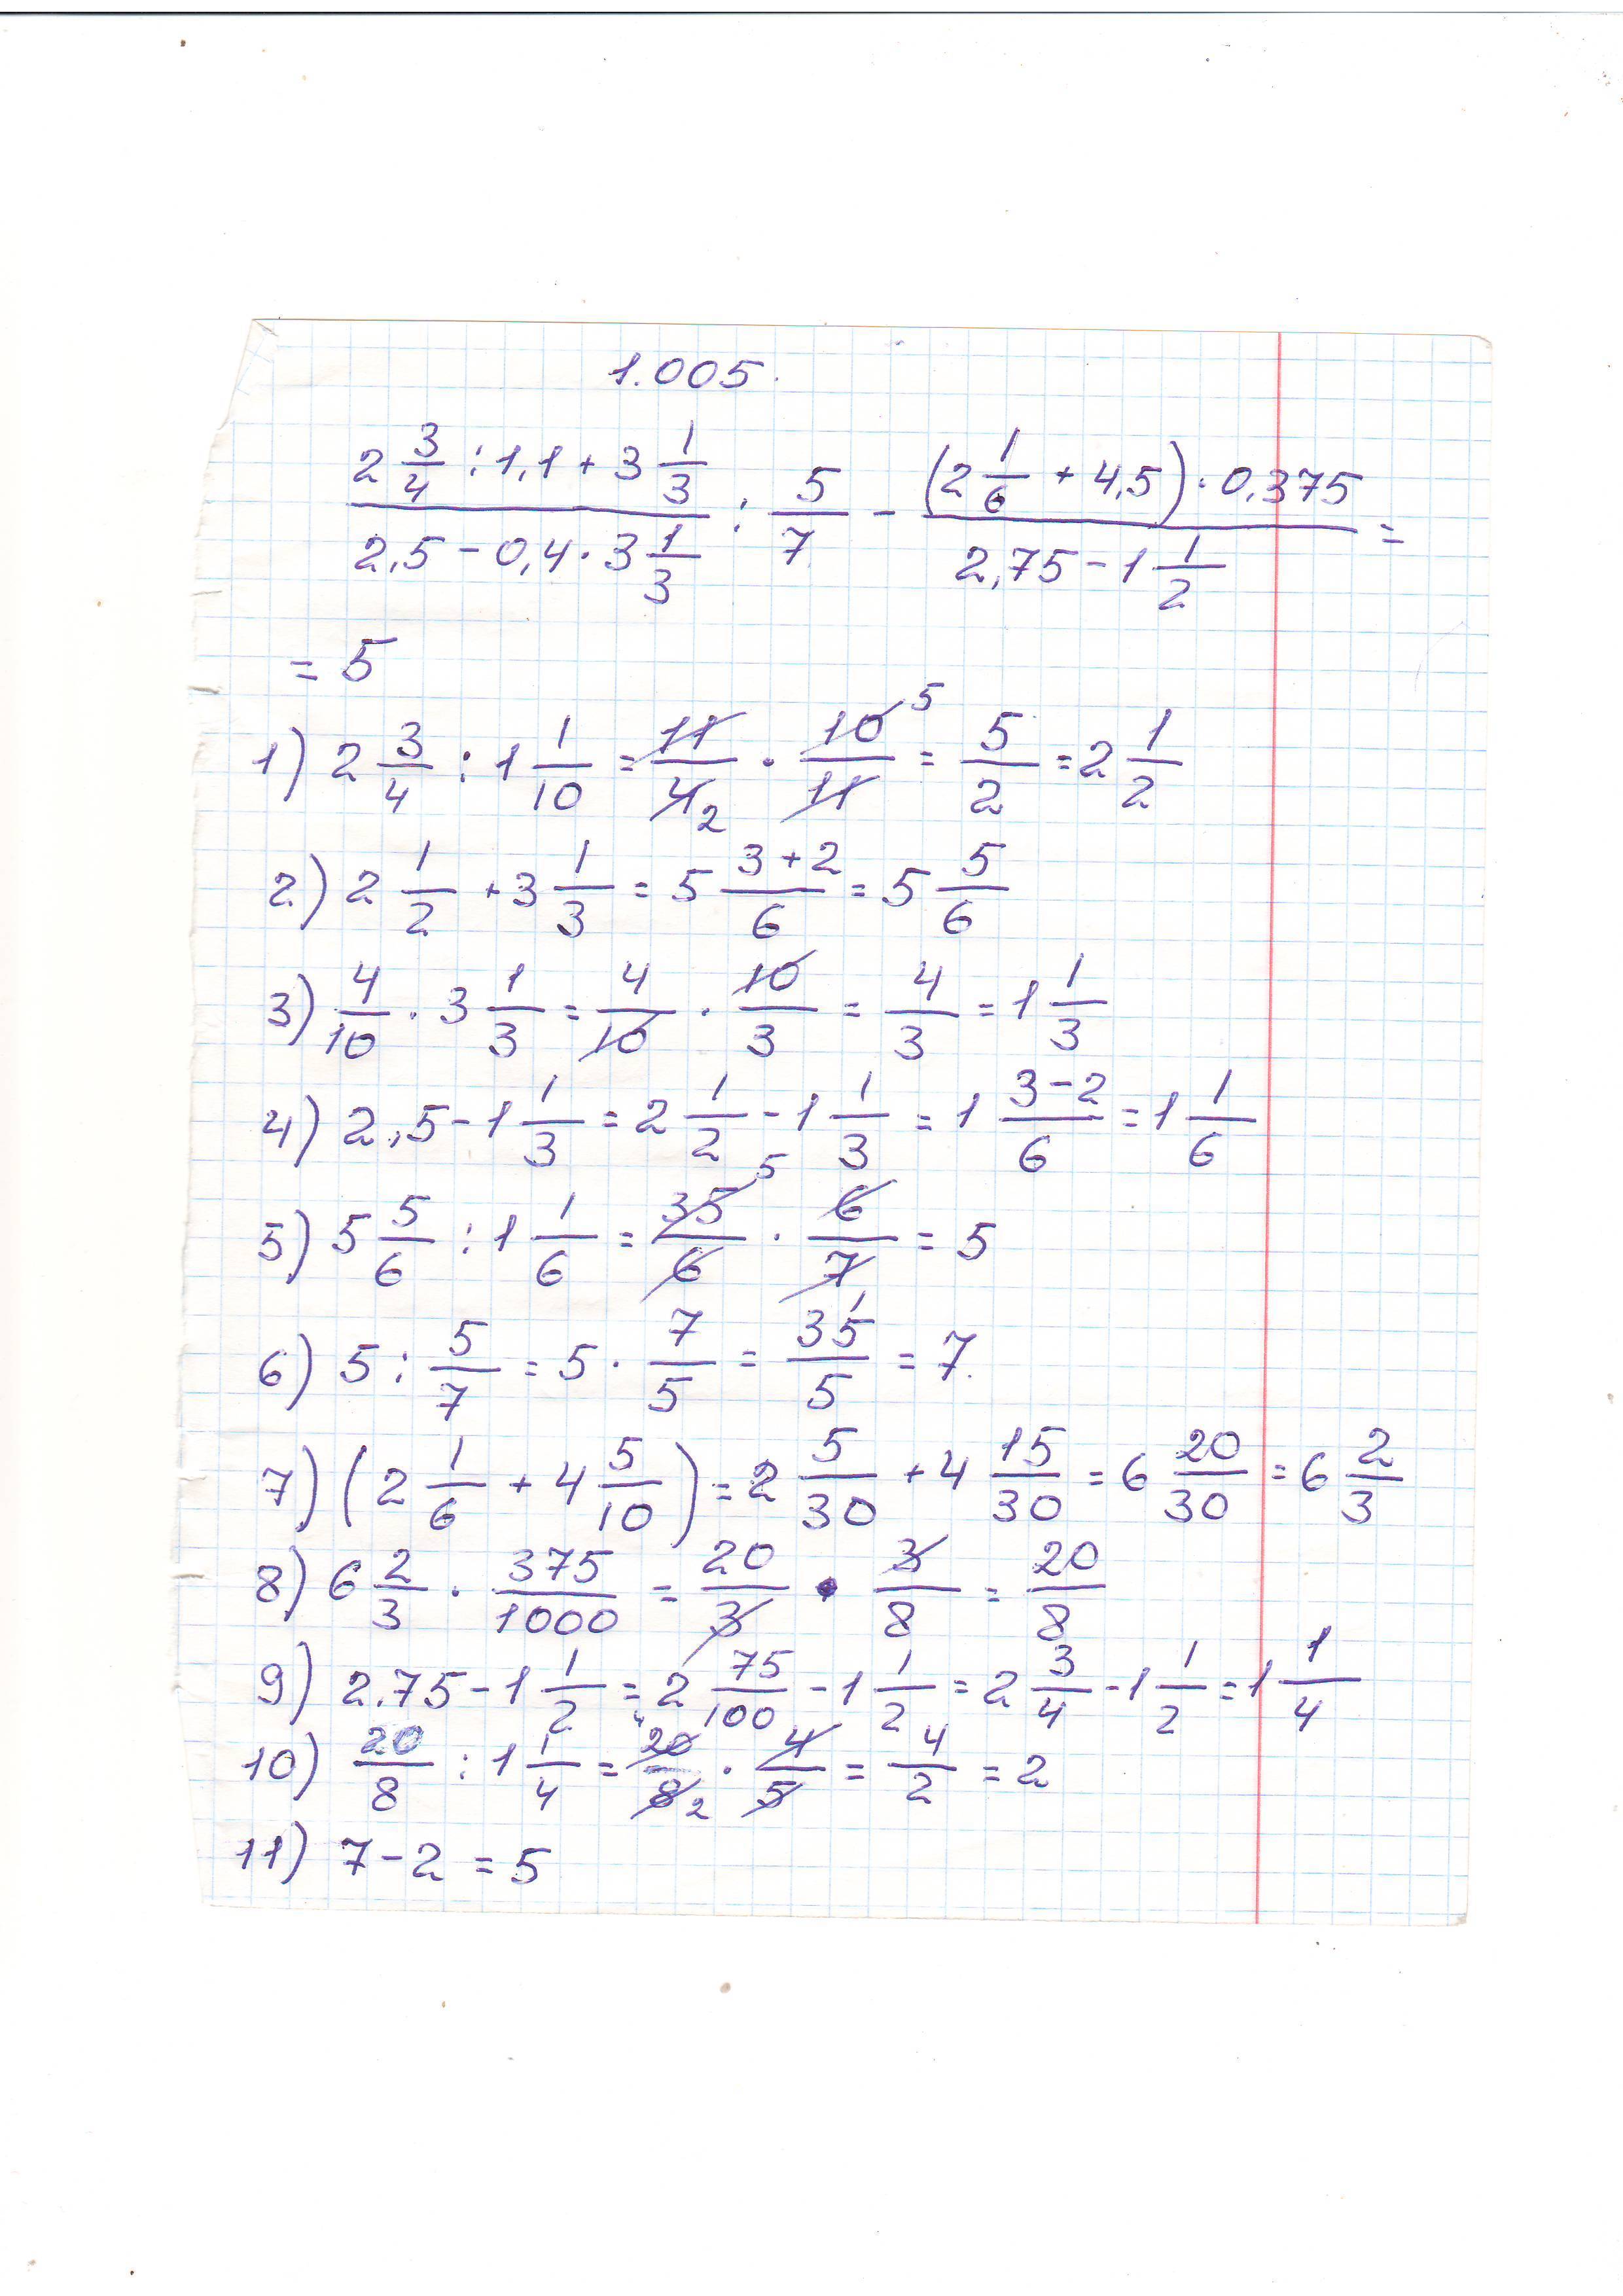 1.005.
(2 3/4 : 1,1 + 3 1/3)/(2,5 - 0,4 · 3 1/3) : 5/7 - ((2 1/6 + 4,5) · 0,375)/(2,75 - 1 1/2) =
= 5
1) 2 3/4 : 1 1/10 = 11/4 2 · 10 5/11 = 5/2 = 2 1/2
2) 2 1/2 + 3 1/3 = 5 (3+2)/6 = 5 5/6
3) 4/10 · 3 1/3 = 4/10 · 10/3 = 4/3 = 1 1/3
4) 2,5 - 1 1/3 = 2 1/2 - 1 1/3 = 1 (3-2)/6 = 1 1/6
5) 5 5/6 : 1 1/6 = 35 5/6 · 6/7 = 5
6) 5 : 5/7 = 5 · 7/5 = 35/5 = 7.
7) (2 1/6 + 4 5/10) = 2 5/30 + 4 15/30 = 6 20/30 = 6 2/3
8) 6 2/3 · 375/1000 = 20/3 · 3/8 = 20/8
9) 2.75 - 1 1/2 = 2 75/100 - 1 1/2 = 2 3/4 - 1 1/2 = 1 1/4
10) 20/8 : 1 1/4 = 4 20/8 2 · 4/5 = 4/2 = 2
11) 7 - 2 = 5